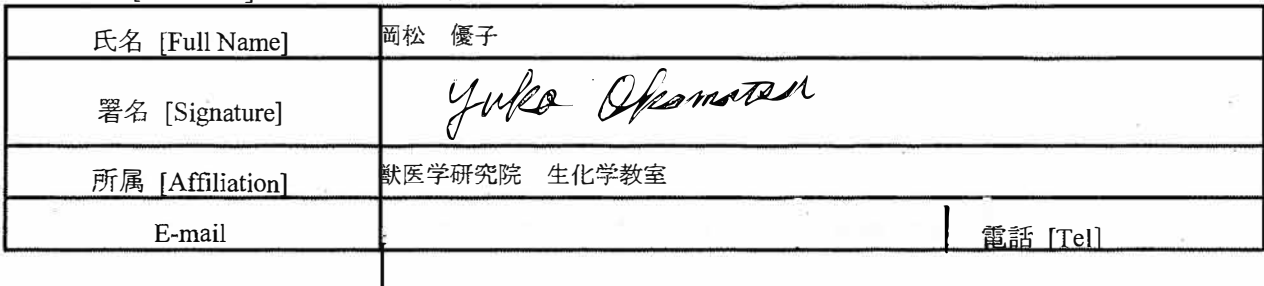 氏名 [Full Name] 岡松 優子
署名 [Signature] Yuko Okamatsu
所属 [Affiliation] 獣医学研究院 生化学教室
E-mail 電話 [Tel]